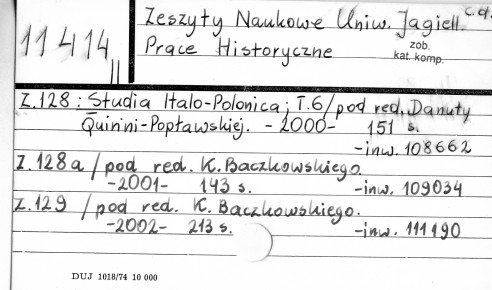 c.d.
Zeszyty Naukowe Uniw. Jagiell.
11414 II
Prace Historyczne
zob.
kat. komp.
Z.128: Studia Italo-Polonica; T.6/pod red. Danuty
Quirini-Popławskiej. -2000- 151 s.
-inw. 108662
Z.128a/pod red. K. Baczkowskiego.
-2001- 143 s. -inw. 109034
Z.129 /pod red. K. Baczkowskiego.
-2002- 213 s. -inw. 111190
DUJ 1018/74 10 000